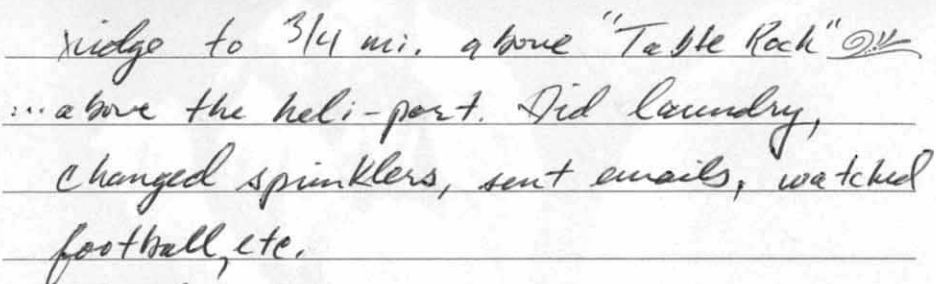 ridge to 3/4 mi. above "Table Rock"
...above the heli-port. Did laundry,
changed sprinklers, sent emails, watched
football, etc.